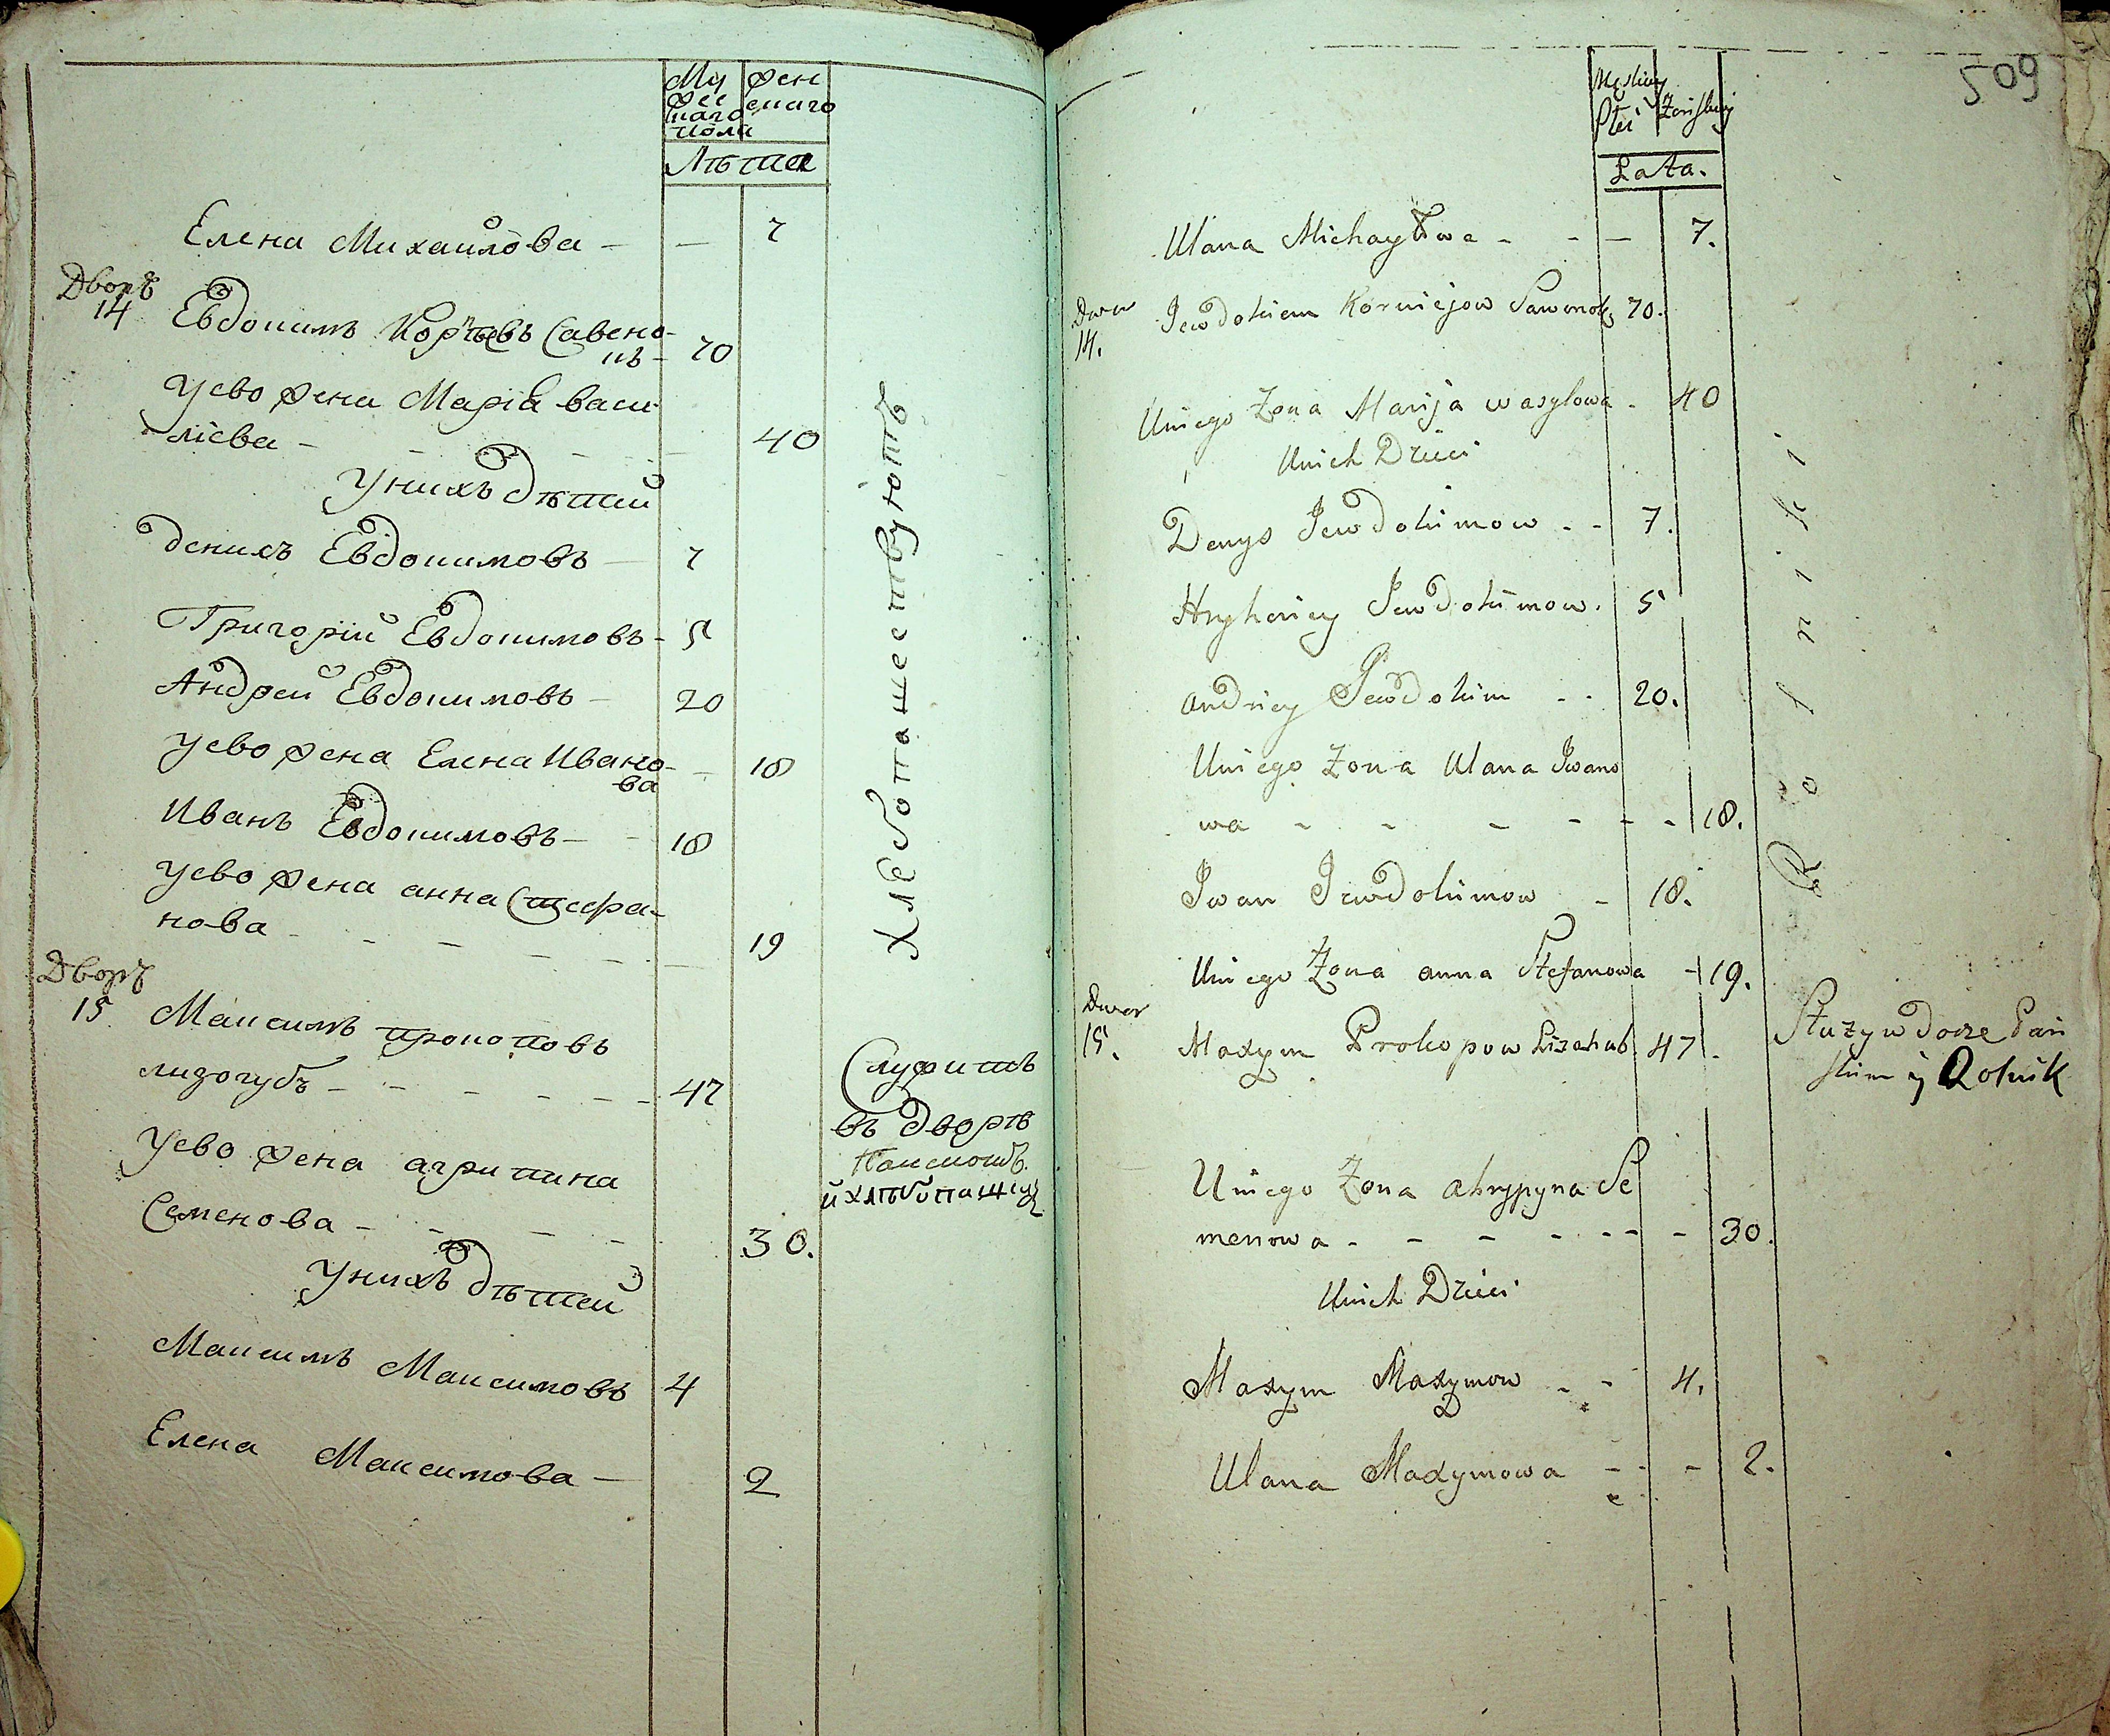 Му
жес
каго
пола
жен
скаго
Лѣта
Елена Михайлова - - 7
Дворъ
14
Евдокимъ Корнѣевъ Савено-
къ - 70
Уево жена Марія васи-
лієва - 40
Унихъ дѣтей
денисъ Евдокимовъ - 7
Григорій Евдокимовъ - 5
Андрей Евдокимовъ - 20
Уево жена Елена Ивано-
ва - 18
Иванъ Евдокимовъ - 18
Уево жена анна Стефа-
нова - 19
Дворъ
15
Максимъ прокоповъ
лизогубъ - 47
Уево жена агрипина
Семенова - 30.
Унихъ дѣтей
Максимъ Максимовъ 4
Елена Максимова - 2
Хлебопашествуютъ
Служитъ
въ дворѣ
509
Płci
Żeńskiey
Lata.
Ulana Michayłowa - - - 7.
Dwor
14.
Jewdokiem Korniejow Sawonok 70.
Uniego Żona Marija wasylowa - 40
Unich Dzieci
Denys Jewdokimow - - 7.
Hryhoriey Jewdokimow. 5
Andriey Jewdokim - - 20.
Uniego Żona Ulana Jwano
wa - - - - - - 18.
Jwan Jewdokimow - 18.
Uniego Żona anna Stefanowa - 19.
Rolniki
Dwor
15.
Maxym Prokopow Lizohub 47.
Służy w dorze Pań
skim y Rolnik
Uniego Żona ahrypyna Se
menowa - - - - - - - 30.
Unich Dzieci
Maxym Maxymow - - 4.
Ulana Maxymowa - - - 2.